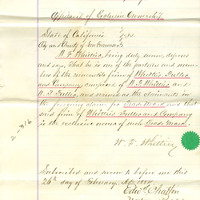 Affidavit of Exclusive Ownership
State of California } SS.
City and County of San Francisco
W. F. Whittier, being duly sworn, deposes
and says, that he is one of the partners and mem-
ber of the mercantile firm of Whittier, Fuller
and Company composed of W. F. Whittier and
W. P. Fuller, and named as the claimants in
the foregoing claim for Trade Mark and that
said firm of Whittier Fuller and Company
is the exclusive owner of such Trade Mark.
W. F. Whittier
Subscribed and sworn to before me this
26th day of February